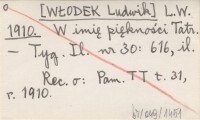 [WŁODEK Ludwik] L.W.
1910. W imię piękności Tatr.
- Tyg. Il. nr 30: 616, il.
Rec. o: Pam. TT t. 31,
r. 1910.